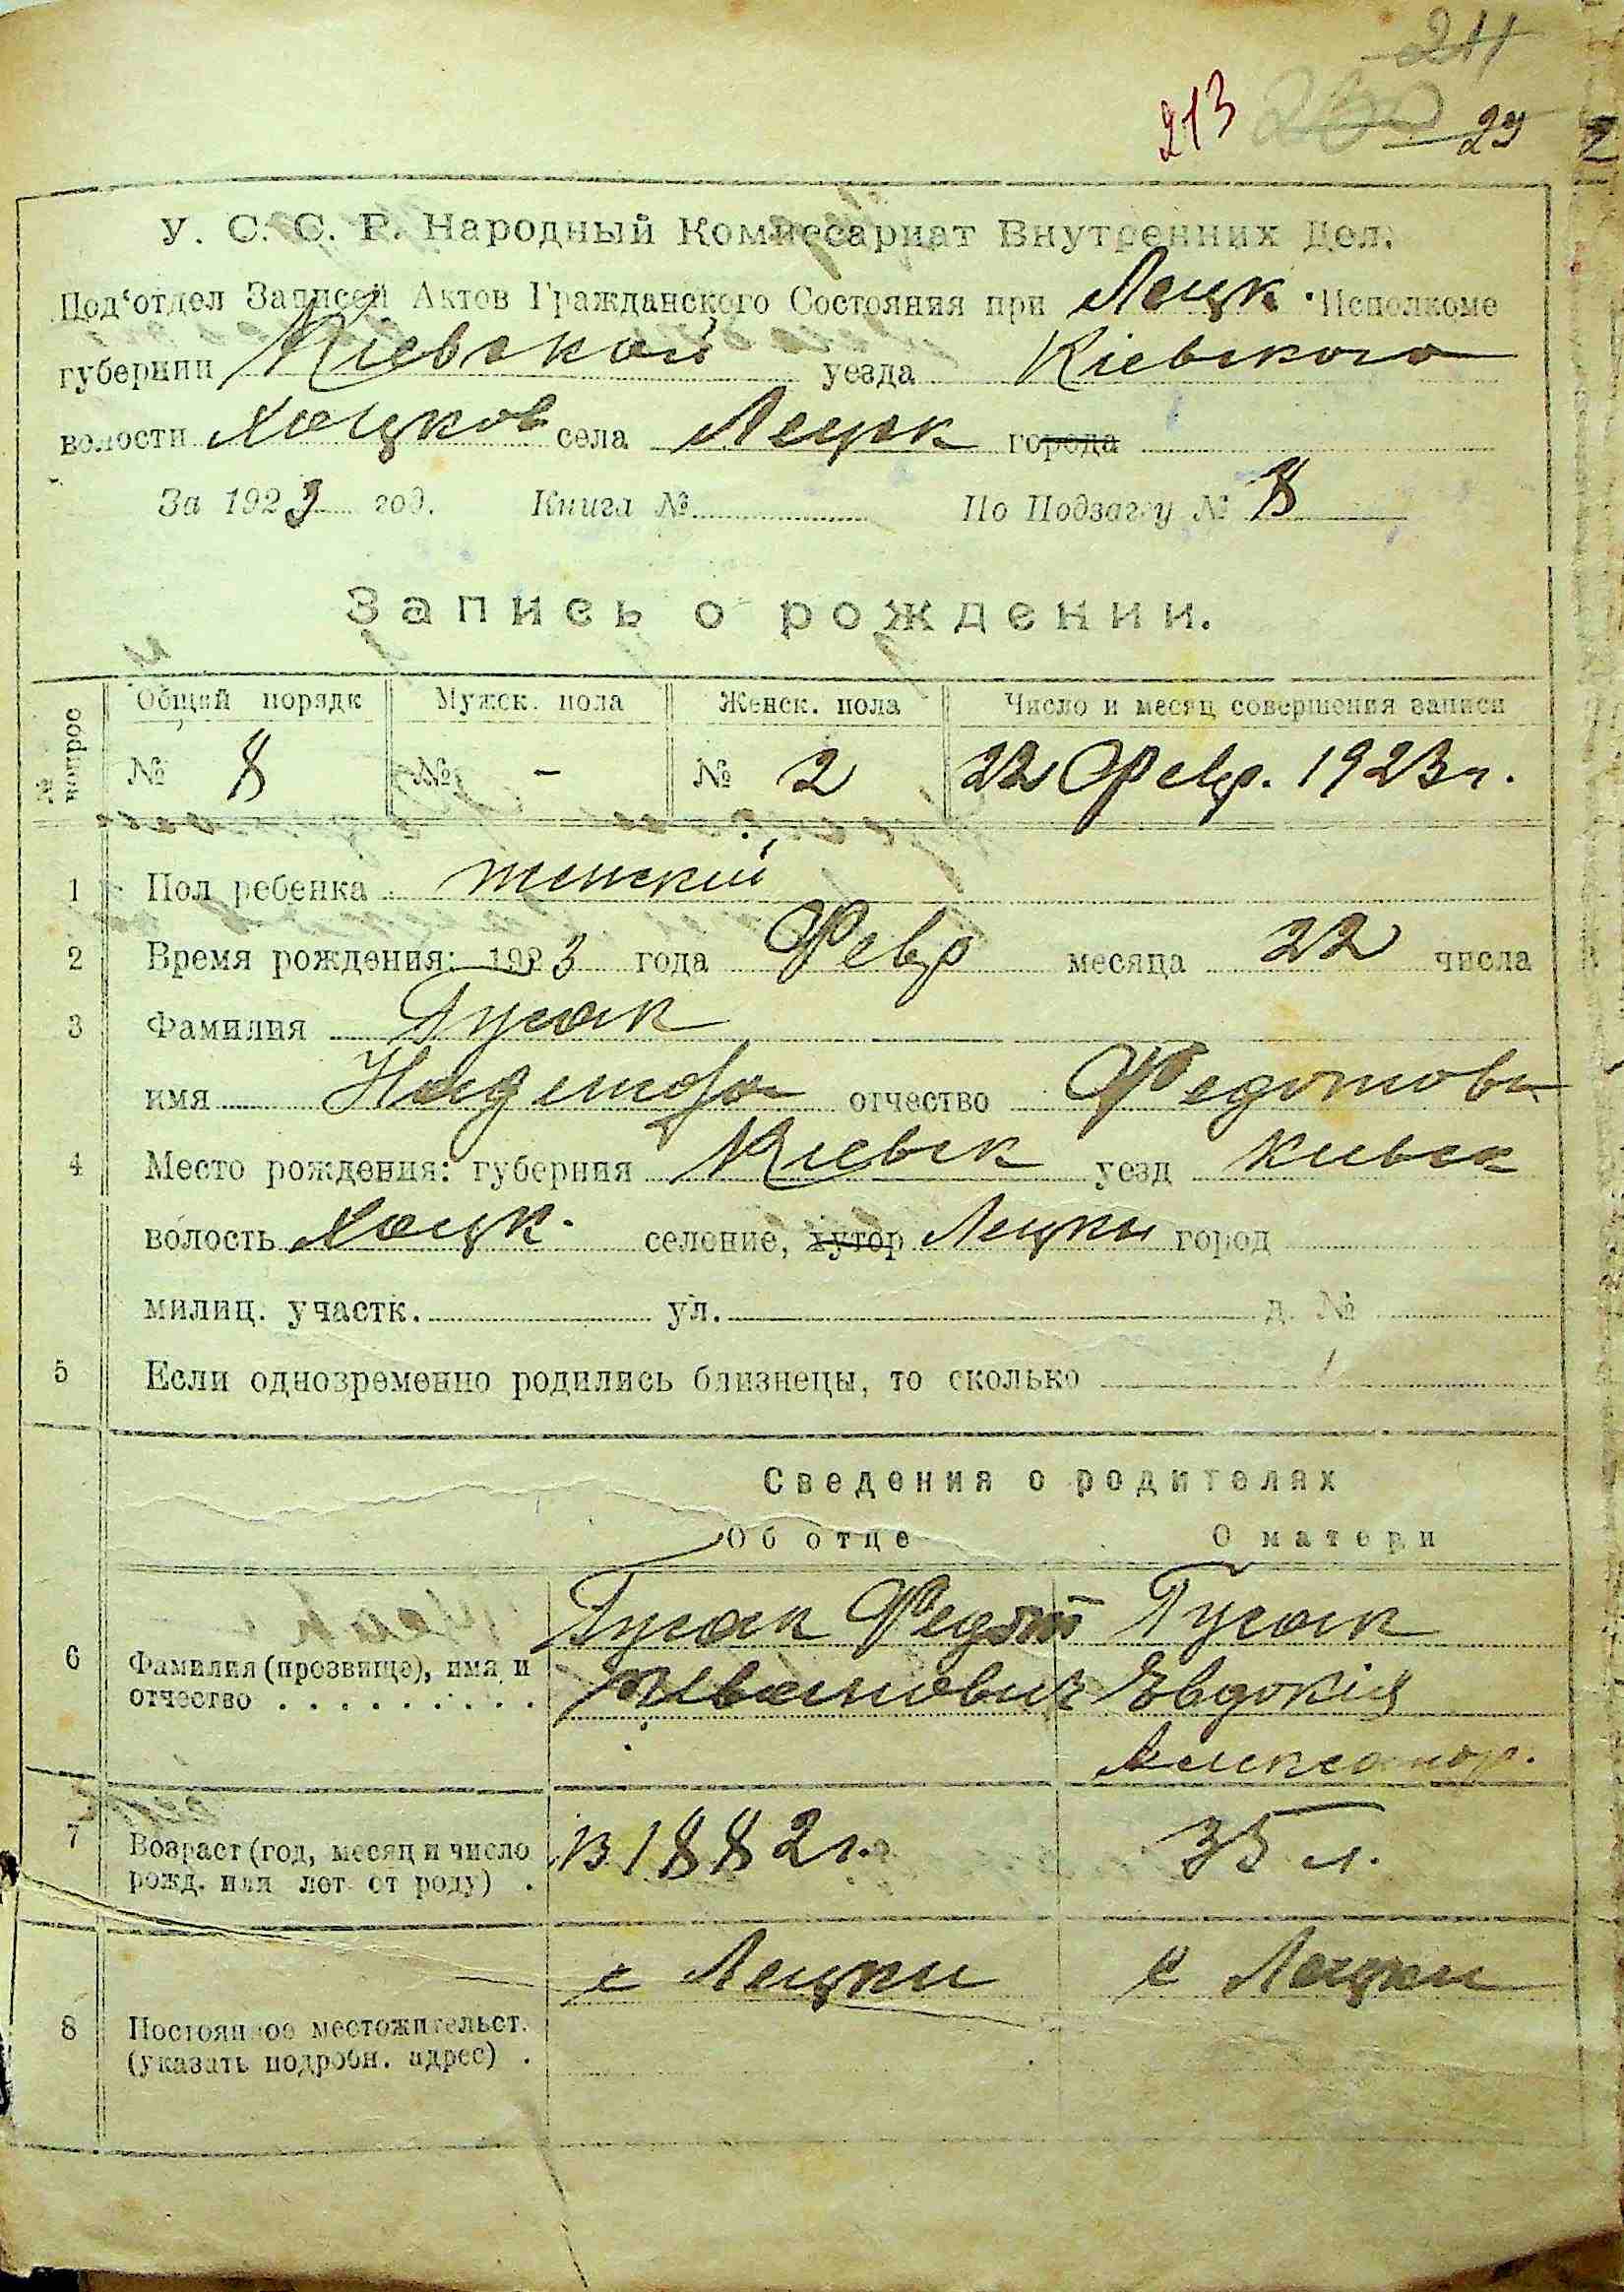 211
213 260 29
У. С. С. Р. Народный Комиссариат Внутренних Дел.
Под‘отдел Записей Актов Гражданского Состояния при Лецк. Исполкоме
губернии Кіевской уезда Кіевского
волости Хоцков села Лецк города
За 1923 год. Книга № По Подзагсу № 8
Запись о рождении.
№ вопрос Общий порядк Мужск. пола Женск. пола Число и месяц совершения записи
№ 8 № - № 2 22 Февр. 1923 г.
1 Пол ребенка женскій
2 Время рождения: 1923 года Февр месяца 22 числа
3 Фамилия Гусак
имя Надежда отчество Федотовн
4 Место рождения: губерния Кіевск уезд Киевск
волость Хоцк. селение, хутор Лецки город
милиц. участк. ул. д. №
5 Если одновременно родились близнецы, то сколько
Сведения о родителях
Об отце О матери
Гусак Федот Гусак
6 Фамилия (прозвище), имя и Иванович Евдокія
отчество . . . . . . . . .
Александр.
7 Возраст (год, месяц и число В 1882 г. 35 л.
рожд. или лет от роду) .
с Лецки с Лецки
8 Постоянное местожительст.
(указать подробн. адрес) .